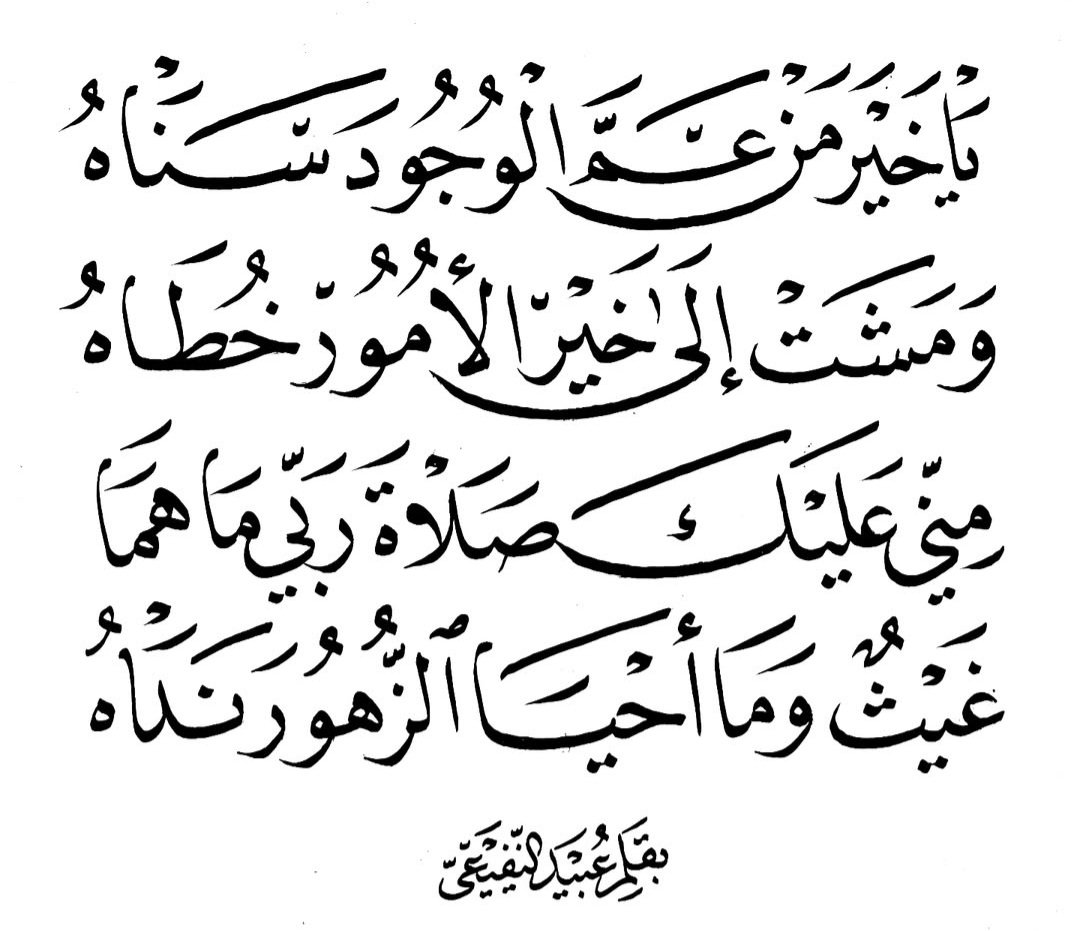 يَاخَيْرَ مَنْ عَمَّ الْوُجُودَ سَنَاهُ
وَمَشَتْ إِلَى خَيْرِ الأُمُورِ خُطَاهُ
مِنِّي عَلَيْكَ صَلَاةَ رَبِّي مَا هَمَا
غَيْثٌ وَمَا أَحْيَا ٱلزُّهُورَ نَدَاهُ
بقلم عُبيد النفيعي